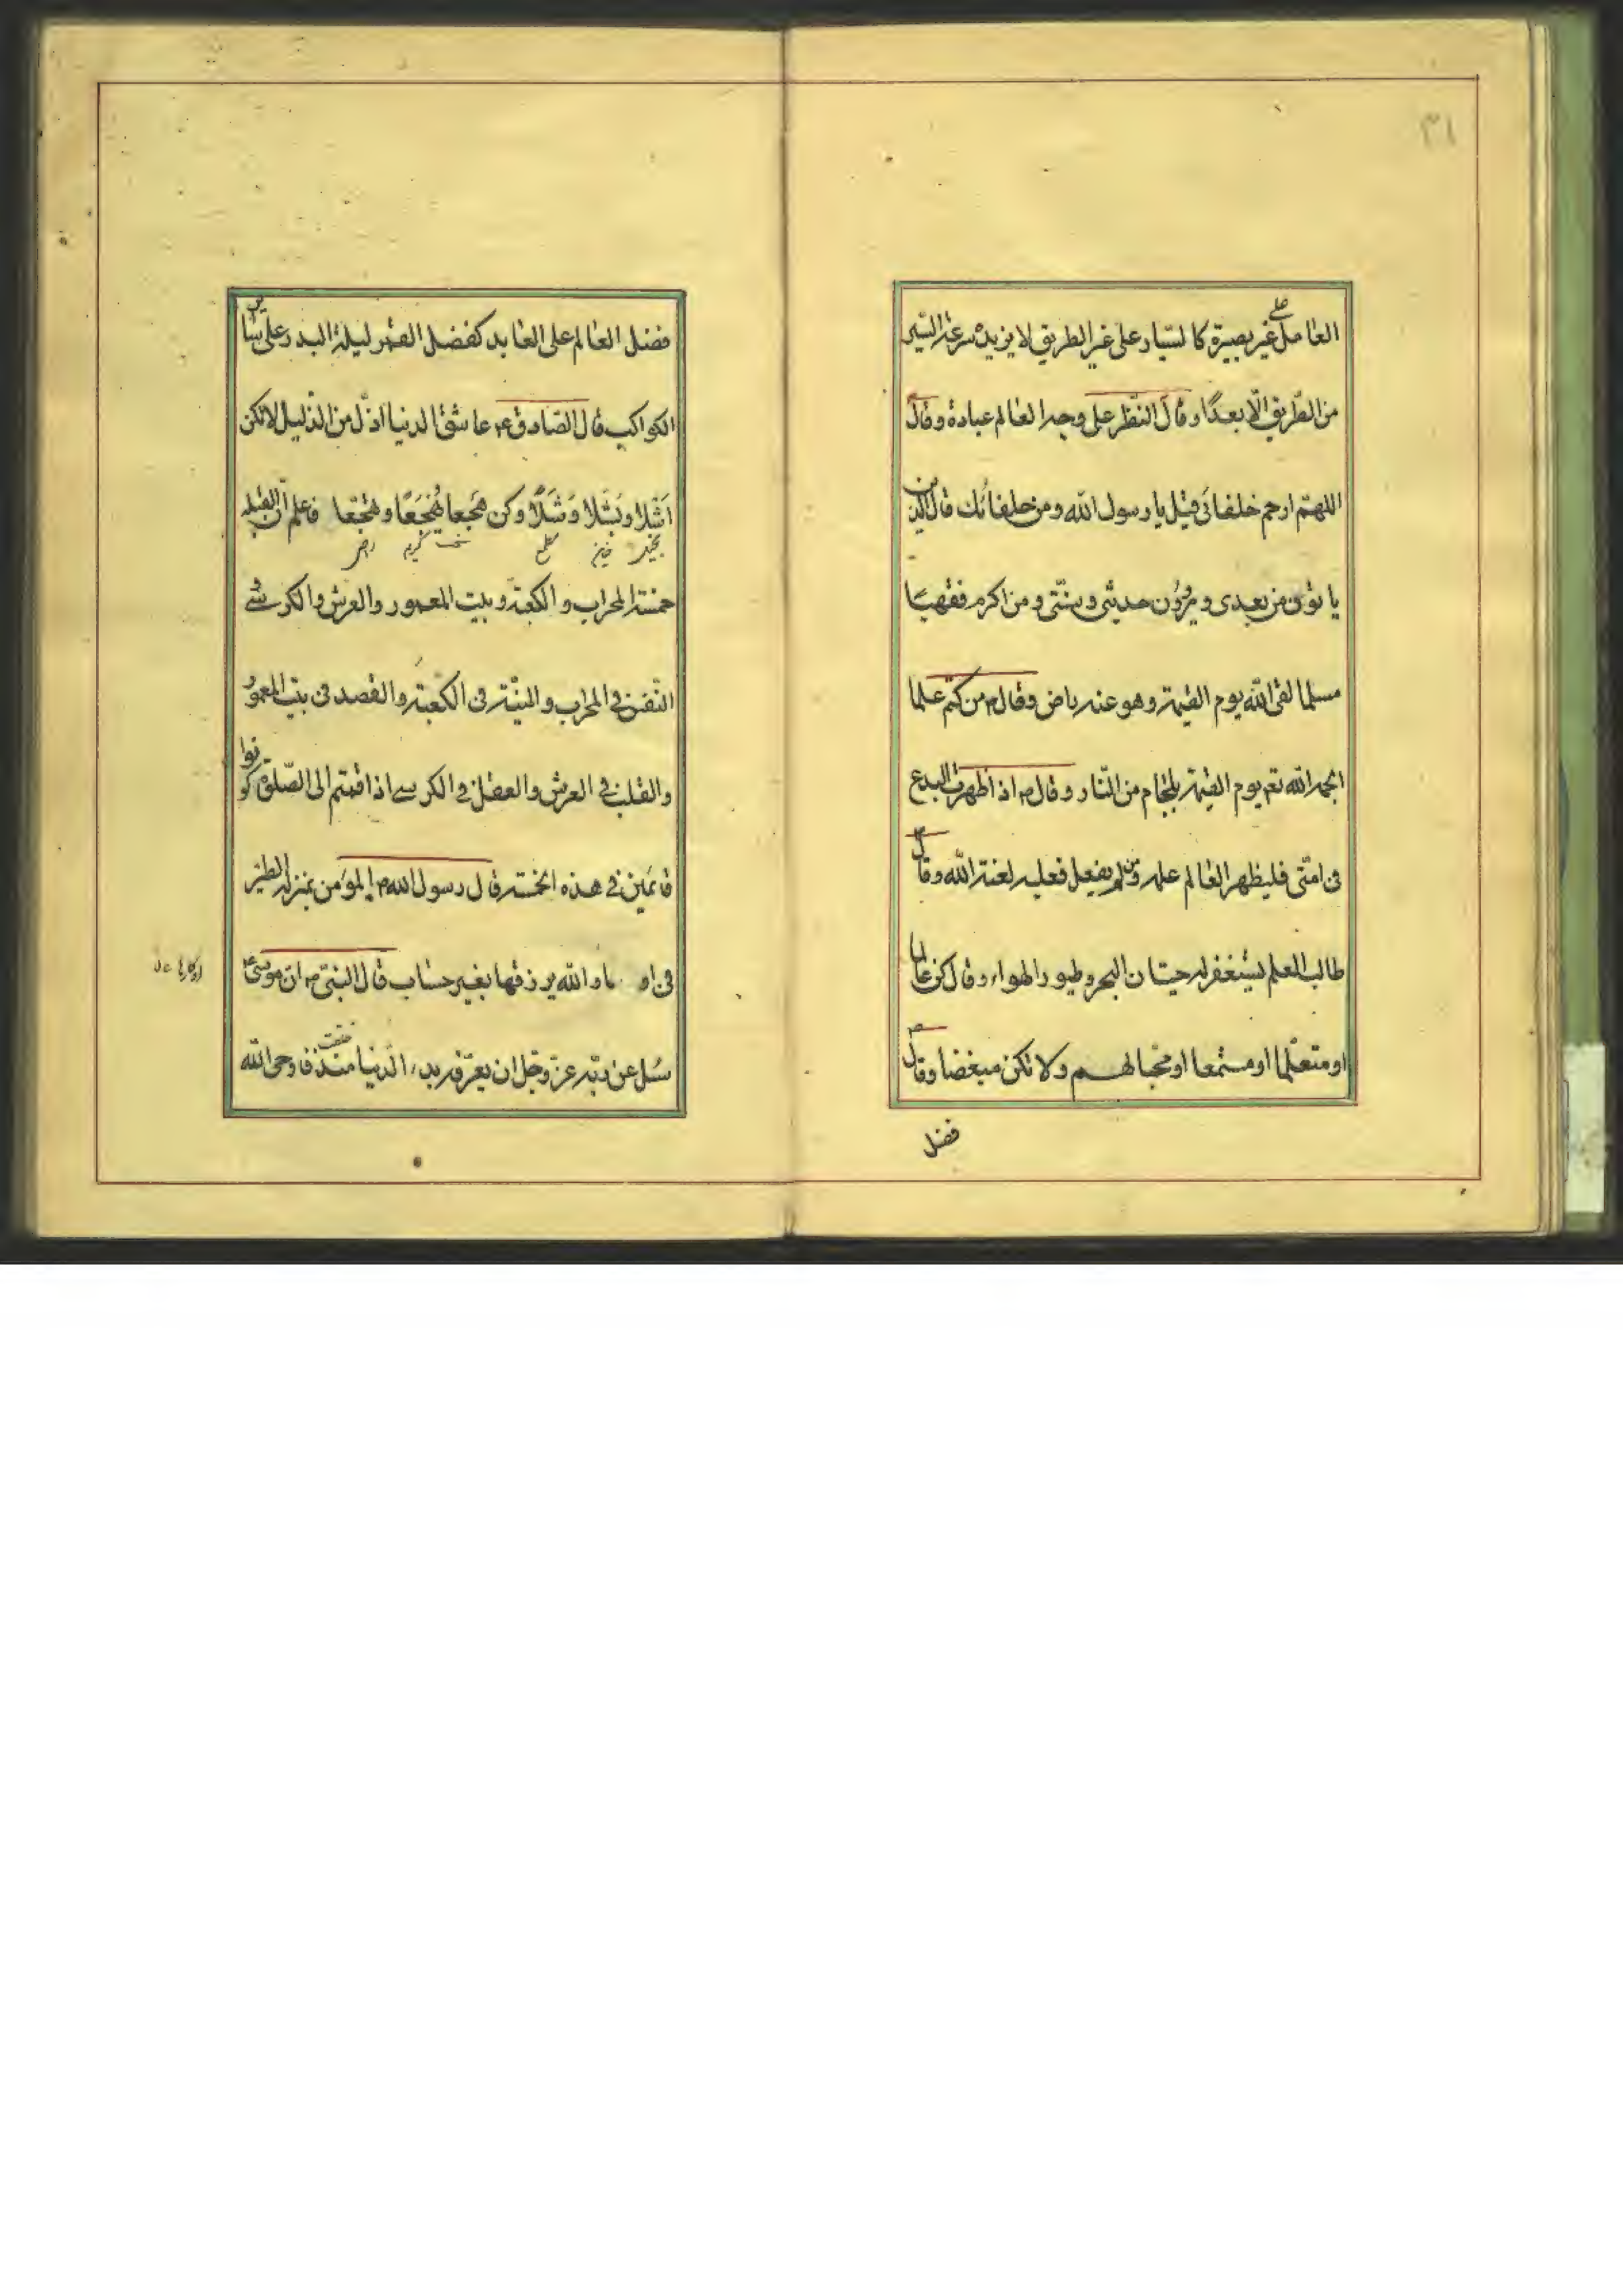 ٣١
العامل على غير بصيرة كالسيار على غير الطريق لا يزيده سرعة السير
من الطّريق الّا بعدًا وقال النّظر على وجه العالم عبادة وقال
اللهّم ارحم خلفائى قيل يا رسول الله ومن خلفائك قال الذين
ياتون من بعدى ويروُون حديثى وسنّتى ومن اكرم فقهيًا
مسلما لقى الله يوم القيمة وهو عنه راض وقال ص من كتم علما
الجمه الله تع يوم القيمة بلجام من النّار وقال ص اذا ظهرت البدع
فى امّتى فليظهر العالم علمه ومن لم يفعل فعليه لعنة الله وقال ص
طالب العلم ليستغفر له حيتان البحر وطيور الهواء وقال كن عالما
او متعلّما او مستمعا او محبّا لهم ولا تكن مبغضا وقال ص
فضل
فضل العالم على العابد كفضل القمر ليلة البدر على ساير
الكواكب قال الصّادق ع عاشق الدنيا اذلّ من الذّليل لا تكن
اَشَلا وبَشَلا وَشَلًا وكن هَجَعا فاعلم انّ القبلة
بخيل
خمسة المحراب والكعبة وبيت المعمور والعرش والكرسى
النّفس فى المحراب والنيّة فى الكعبة والقصد فى بيت المعمور
والقلب فى العرش والعقل فى الكرسى اذا قمتم الى الصّلوة كونوا
قائمين فى هذه الخمسة قال رسول الله ص المؤمن بمنزلة الطير
فى او ماد الله يرزقها بغير حساب قال النبىّ ص ان موسى ع
سئل عن ربّه عزّ وجّل ان يعرّفه بدء الدّنيا منذ خلقت فاوحى الله